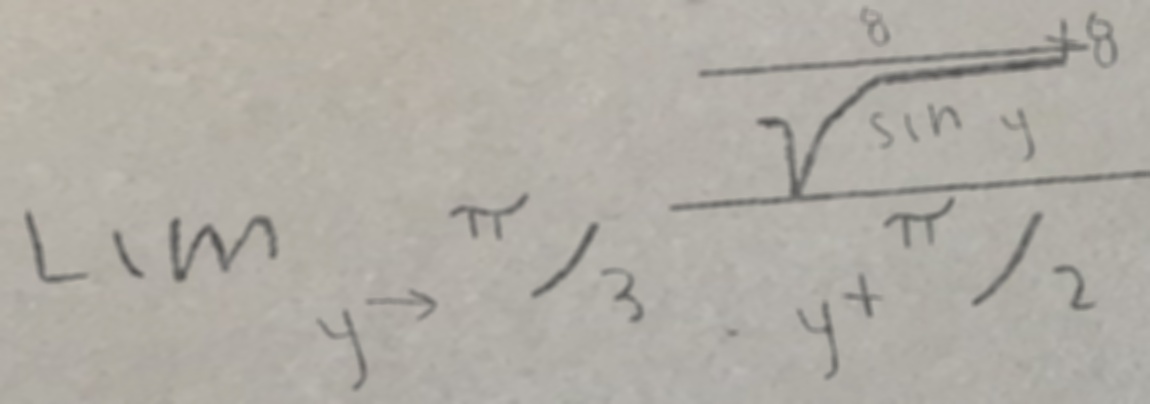 Lim y→ π/3 8/√sin y +8 / y + π/2